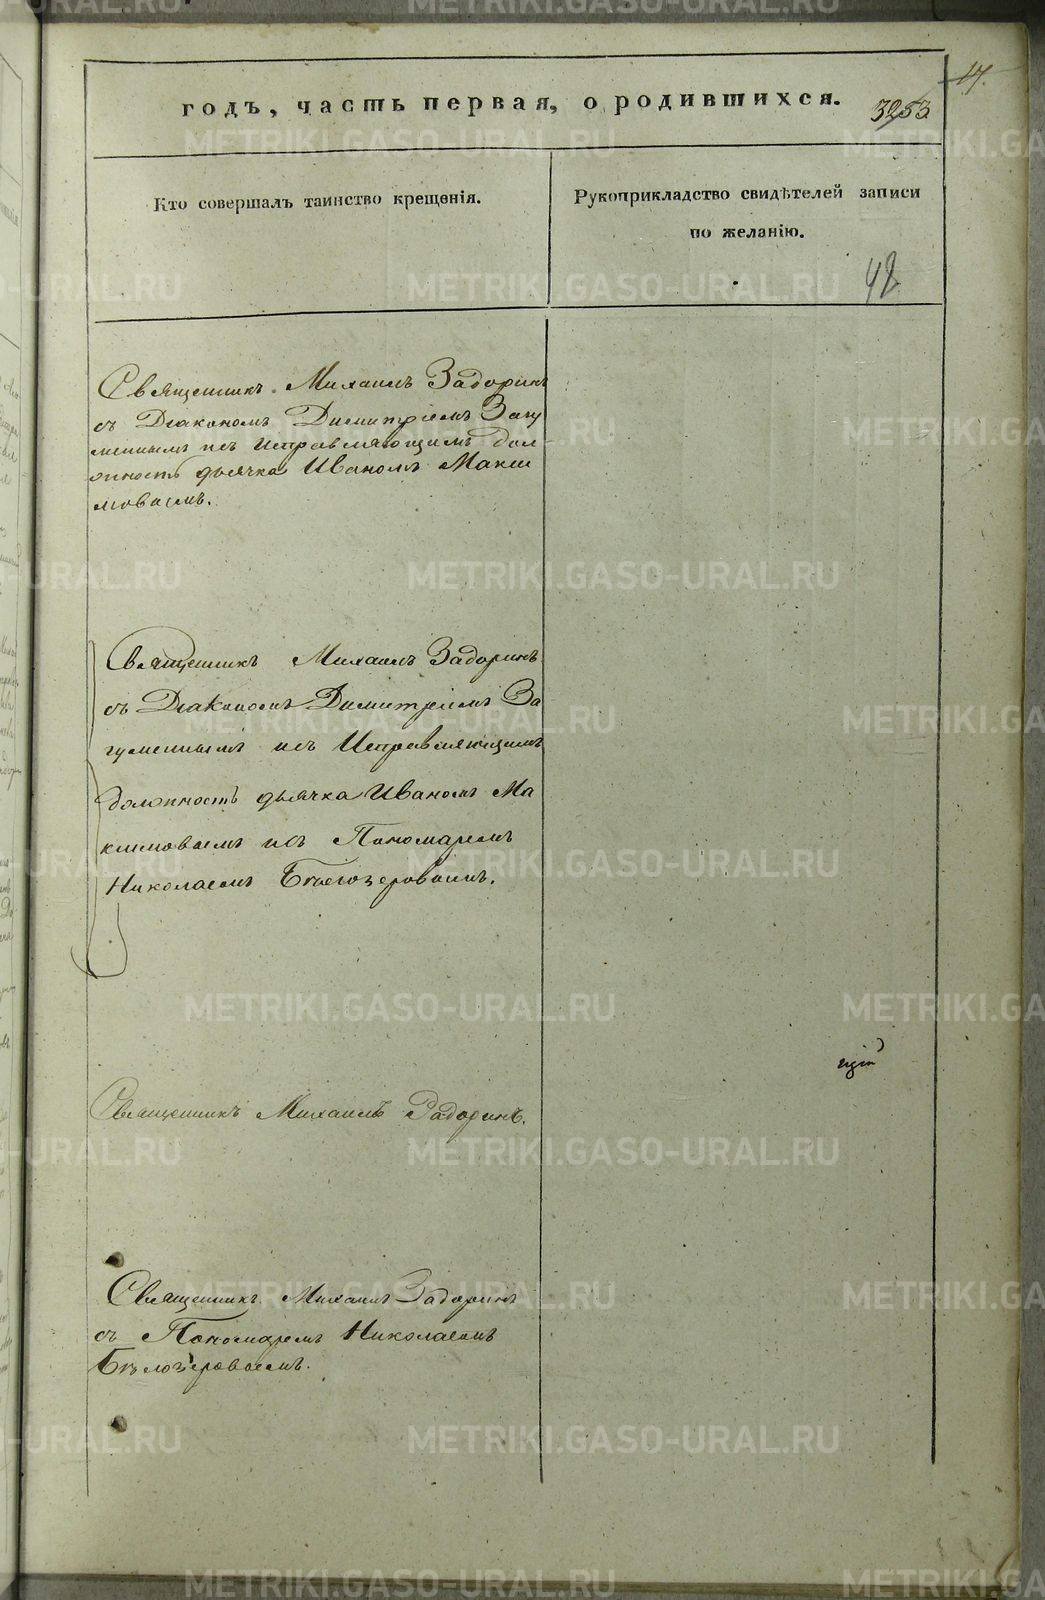 17.
годъ, часть первая, о родившихся. 3253
Кто совершалъ таинство крещенія.
Рукоприкладство свидѣтелей записи
по желанію.
42
Священникъ Михаилъ Задоринъ
съ Діакономъ Димитріемъ Загу
меннымъ исъ Исправляющимъ дол-
жность дьячка Иваномъ Макси
мовымъ.
Священникъ Михаилъ Задоринъ
съ Діакономъ Димитріемъ За
гуменнымъ исъ Исправляющимъ
должность дьячка Иваномъ Ма
ксимовымъ исъ Пономаремъ
Николаемъ Бѣлозеровымъ.
Священникъ Михаилъ Задоринъ.
Священникъ Михаилъ Задоринъ
съ Пономаремъ Николаемъ
Бѣлозеровымъ.
METRIKI.GASO-URAL.RU